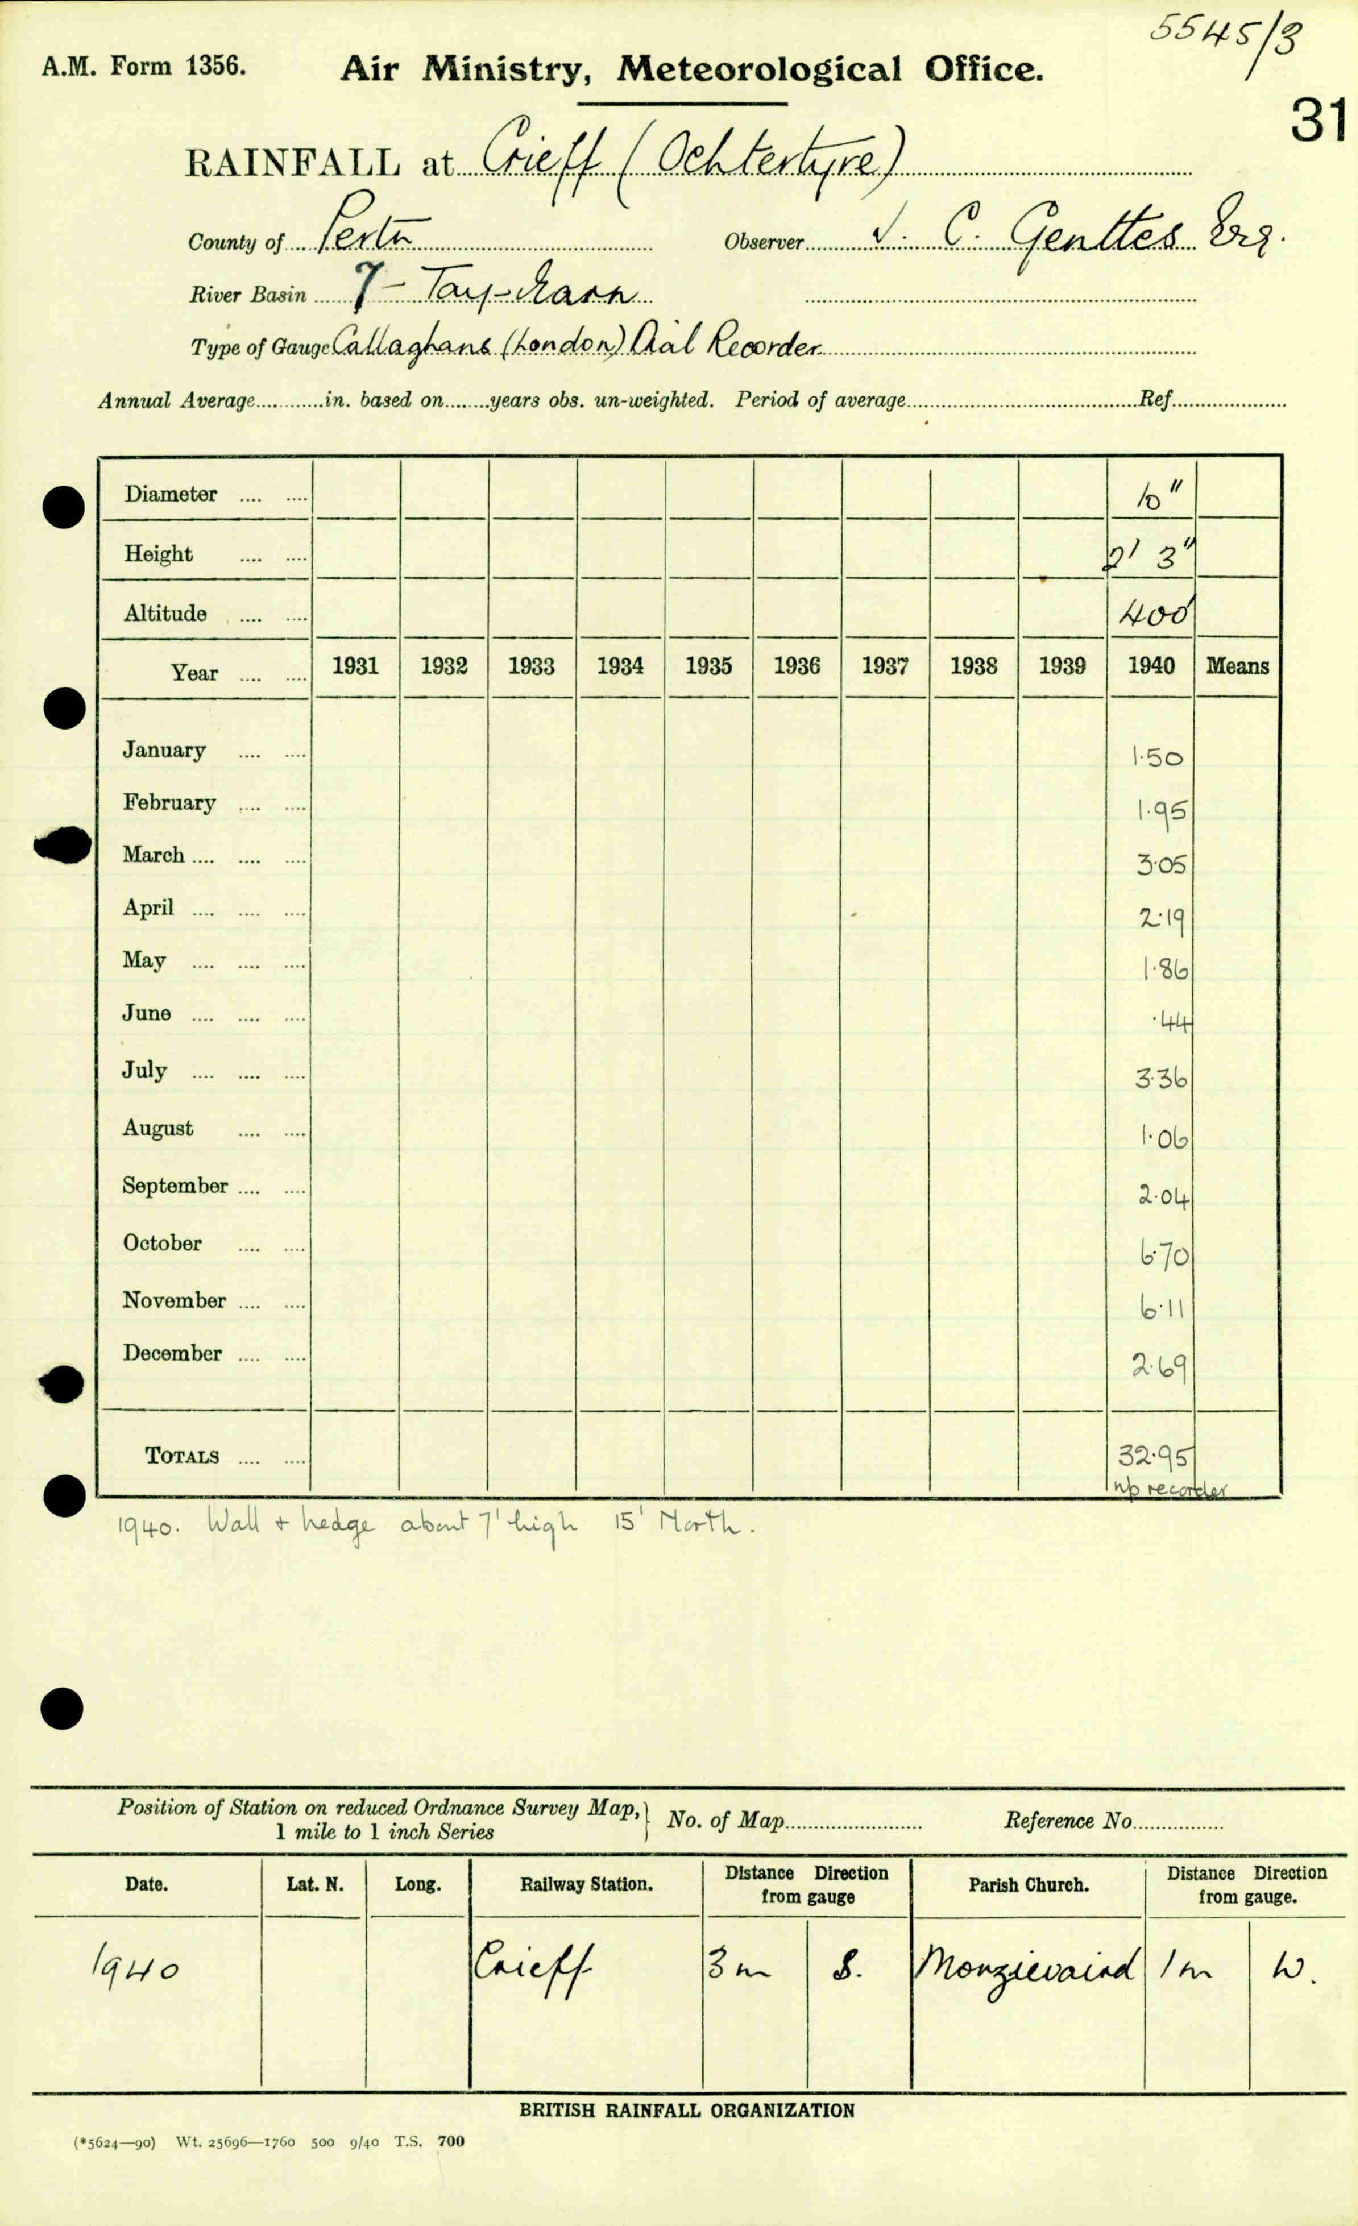 5545/3
A.M. Form 1356. Air Ministry, Meteorological Office.
31
RAINFALL at Crieff (Ochtertyre)
County of Perth Observer J. C. Esq.
River Basin 7 - Tay-Earn
Type of Gauge Callaghans (London) Dial Recorder
Annual Average in. based on years obs. un-weighted. Period of average Ref.
Diameter 10"
Height 2' 3"
Altitude 400'
Year 1931 1932 1933 1934 1935 1936 1937 1938 1939 1940 Means
January 1.50
February 1.95
March 3.05
April 2.19
May 1.86
June .44
July 3.36
August 1.06
September 2.04
October 6.70
November 6.11
December 2.69
TOTALS 32.95
recorder
1940. Wall + hedge about 7' high 15' North.
Position of Station on reduced Ordnance Survey Map, No. of Map Reference No.
1 mile to 1 inch Series
Date. Lat. N. Long. Railway Station. Distance Direction from gauge Parish Church. Distance Direction from gauge.
1940 Crieff 3 m S. Monzievaird 1 m W.
BRITISH RAINFALL ORGANIZATION
(*5624—90) Wt. 25696—1760 500 9/40 T.S. 700